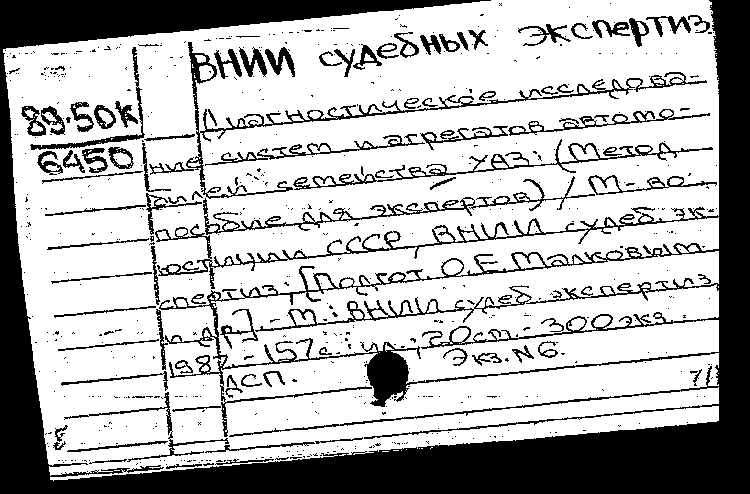 ВНИИ судебных экспертиз
89.50к
6450
Диагностическое исследова-
ние систем и агрегатов автомо-
билей семейства УАЗ: (Метод.
пособие для экспертов) / М-во
юстиции СССР, ВНИИ судеб. эк-
спертиз; [Подгот. О.Е. Малковым
и др.]. - М.: ВНИИ судеб. экспертиз,
1987. - 157с.: ил.; 20см. - 300экз.
ДСП. Экз. N6.